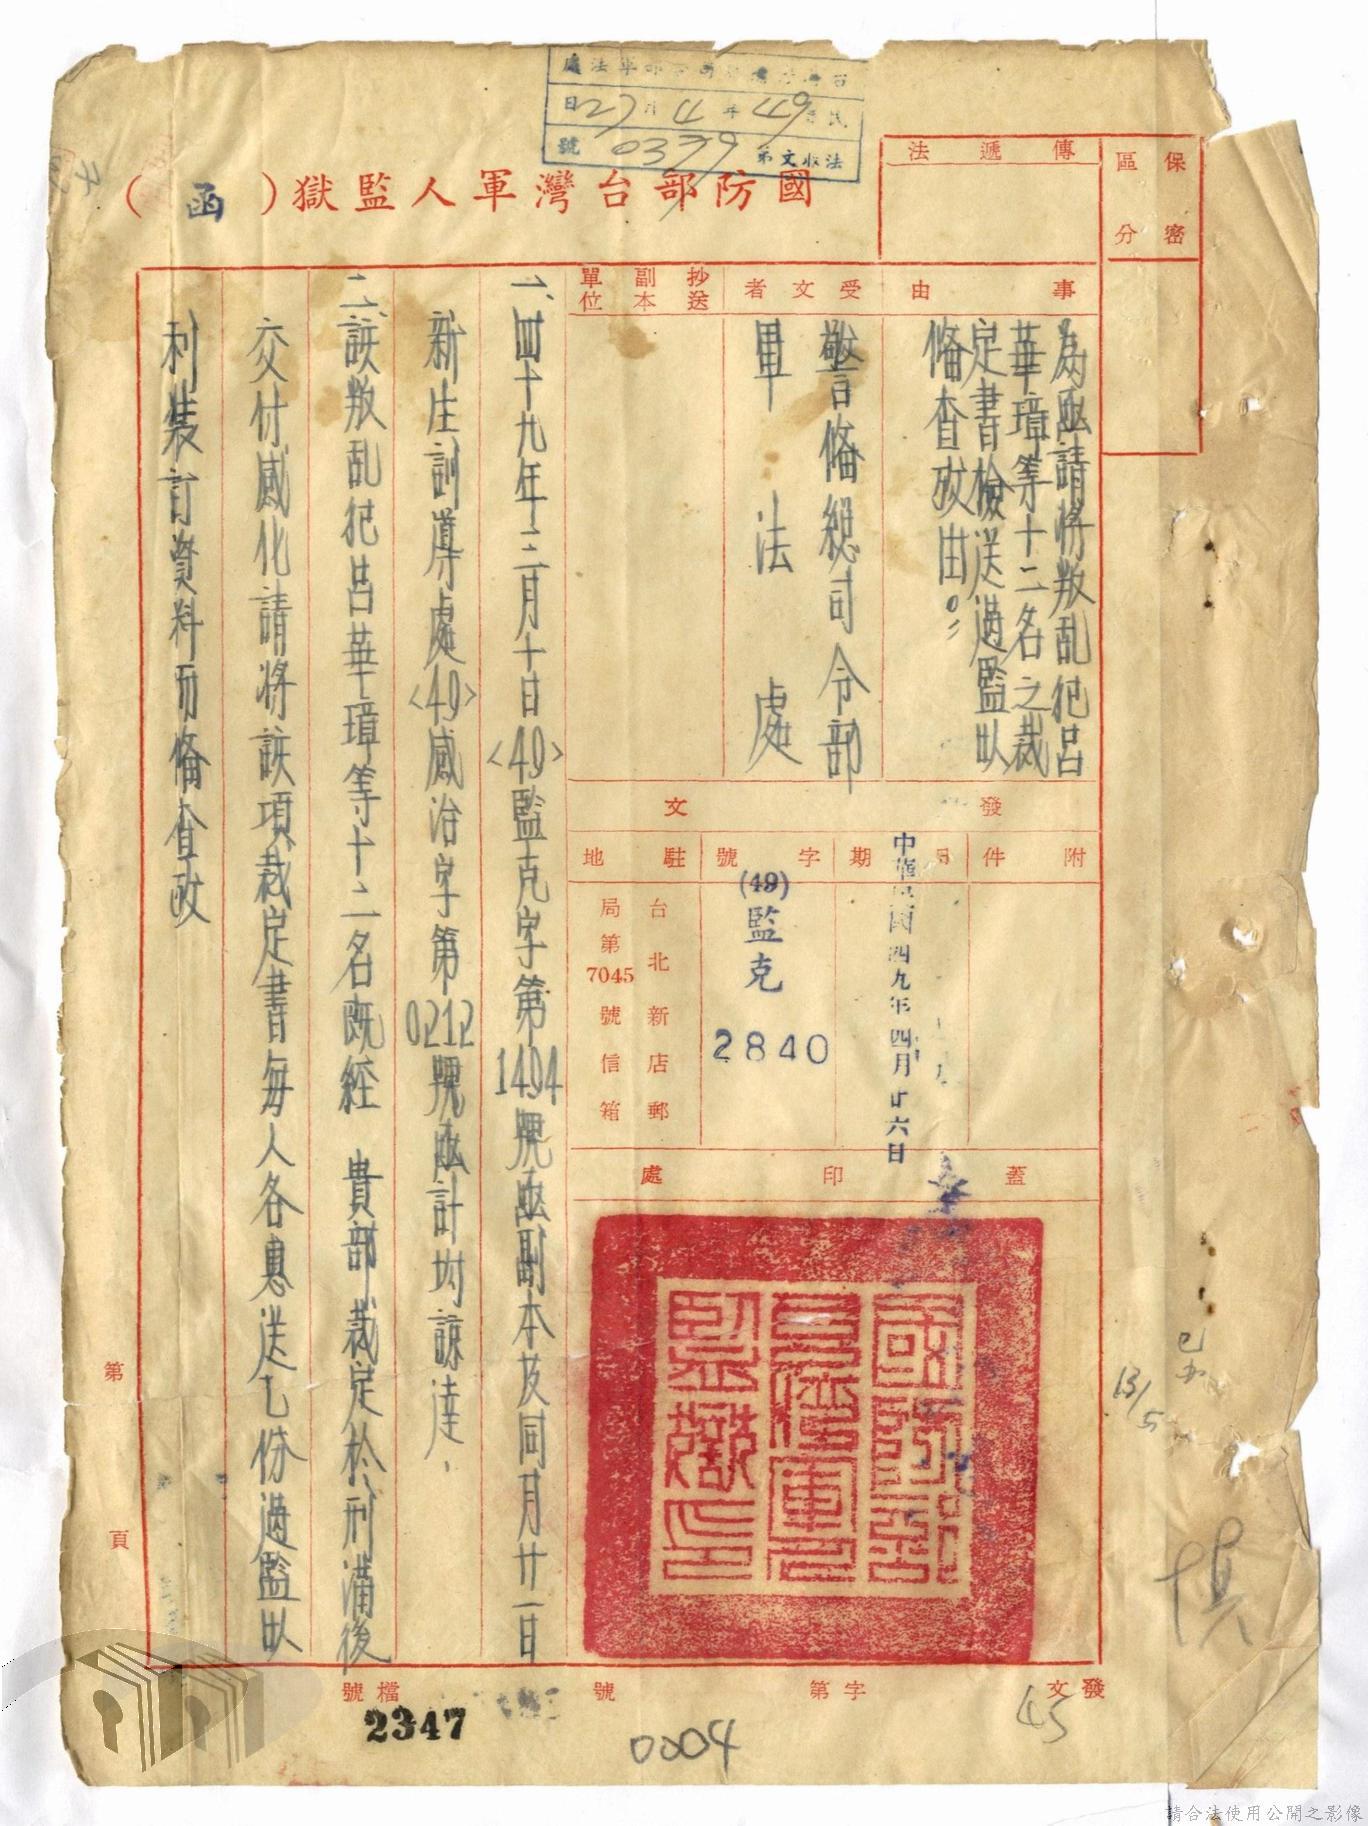 法處
民 49年 4月 27日
法收文第 0339 號
國防部台灣軍人監獄(函)
保密
區分
傳遞法
事由
為函請將叛乱犯呂
華璋等十二名之裁
定書檢送過監以
俻查攷由。
受文者
警俻總司令部
軍法處
抄送
副本
單位
發文
附件
日期
中華民國四九年四月廿六日
字號
(49)
監克
2840
駐地
台北新店郵
局第7045號信箱
蓋印處
國防部
台灣軍人
監獄印
一、四十九年三月十日<49>監克字第1494號函副本及同月廿一日
新生訓導處<49>感治字第0212號函計均諒達、
二、該叛乱犯呂華璋等十二名既經 貴部裁定於刑滿後
交付感化請將該項裁定書每人各惠送乙份過監以
利裝訂資料而俻查攷
第
頁
已办
13/5
發文
字第
號
檔號
2347
0004
45
請合法使用公開之影像